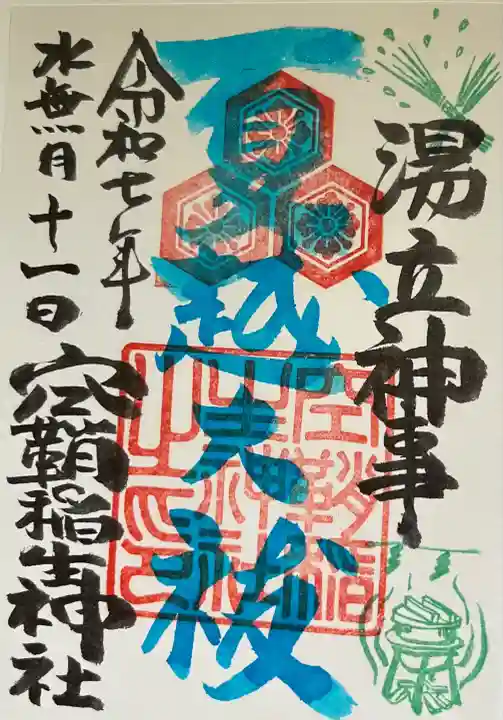 湯立神事
夏越大祓
令和七年
水無月十一日
空鞘稲生神社